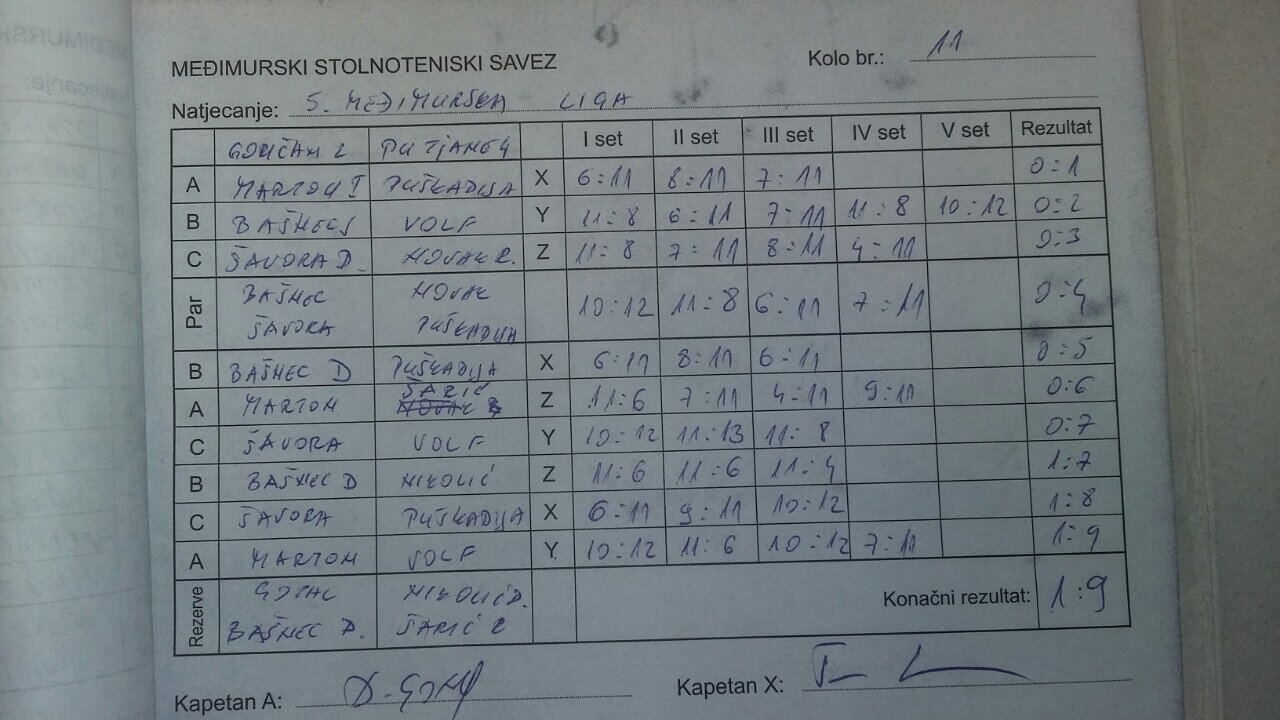 MEĐIMURSKI STOLNOTENISKI SAVEZ Kolo br.: 11
Natjecanje: 5. MEĐIMURSKA LIGA
GORIČAN 2 PUTJANE 4 I set II set III set IV set V set Rezultat
A MARTON I PUŠKADIJA X 6:11 8:11 7:11 0:1
B BAŠNEC S VOLF Y 11:8 6:11 7:11 11:8 10:12 0:2
C ŠAVORA D. NOVAK R. Z 11:8 7:11 8:11 4:11 0:3
Par BAŠNEC NOVAK 10:12 11:8 6:11 7:11 0:4
ŠAVORA PUŠKADIJA
B BAŠNEC D PUŠKADIJA X 6:11 8:11 6:11 0:5
A MARTON ŠARIĆ Z 11:6 7:11 4:11 9:11 0:6
C ŠAVORA VOLF Y 10:12 11:13 11:8 0:7
B BAŠNEC D NIKOLIĆ Z 11:6 11:6 11:4 1:7
C ŠAVORA PUŠKADIJA X 6:11 9:11 10:12 1:8
A MARTON VOLF Y 10:12 11:6 10:12 7:11 1:9
Rezerve GOTAL NIKOLIĆ D. Konačni rezultat: 1:9
BAŠNEC D. ŠARIĆ Z
Kapetan A: Kapetan X: